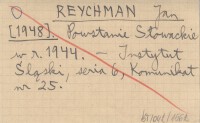 REYCHMAN Jan
[1948]. Powstanie Słowackie
w r. 1944. – Instytut
Śląski, seria 6, Komunikat
nr 25.